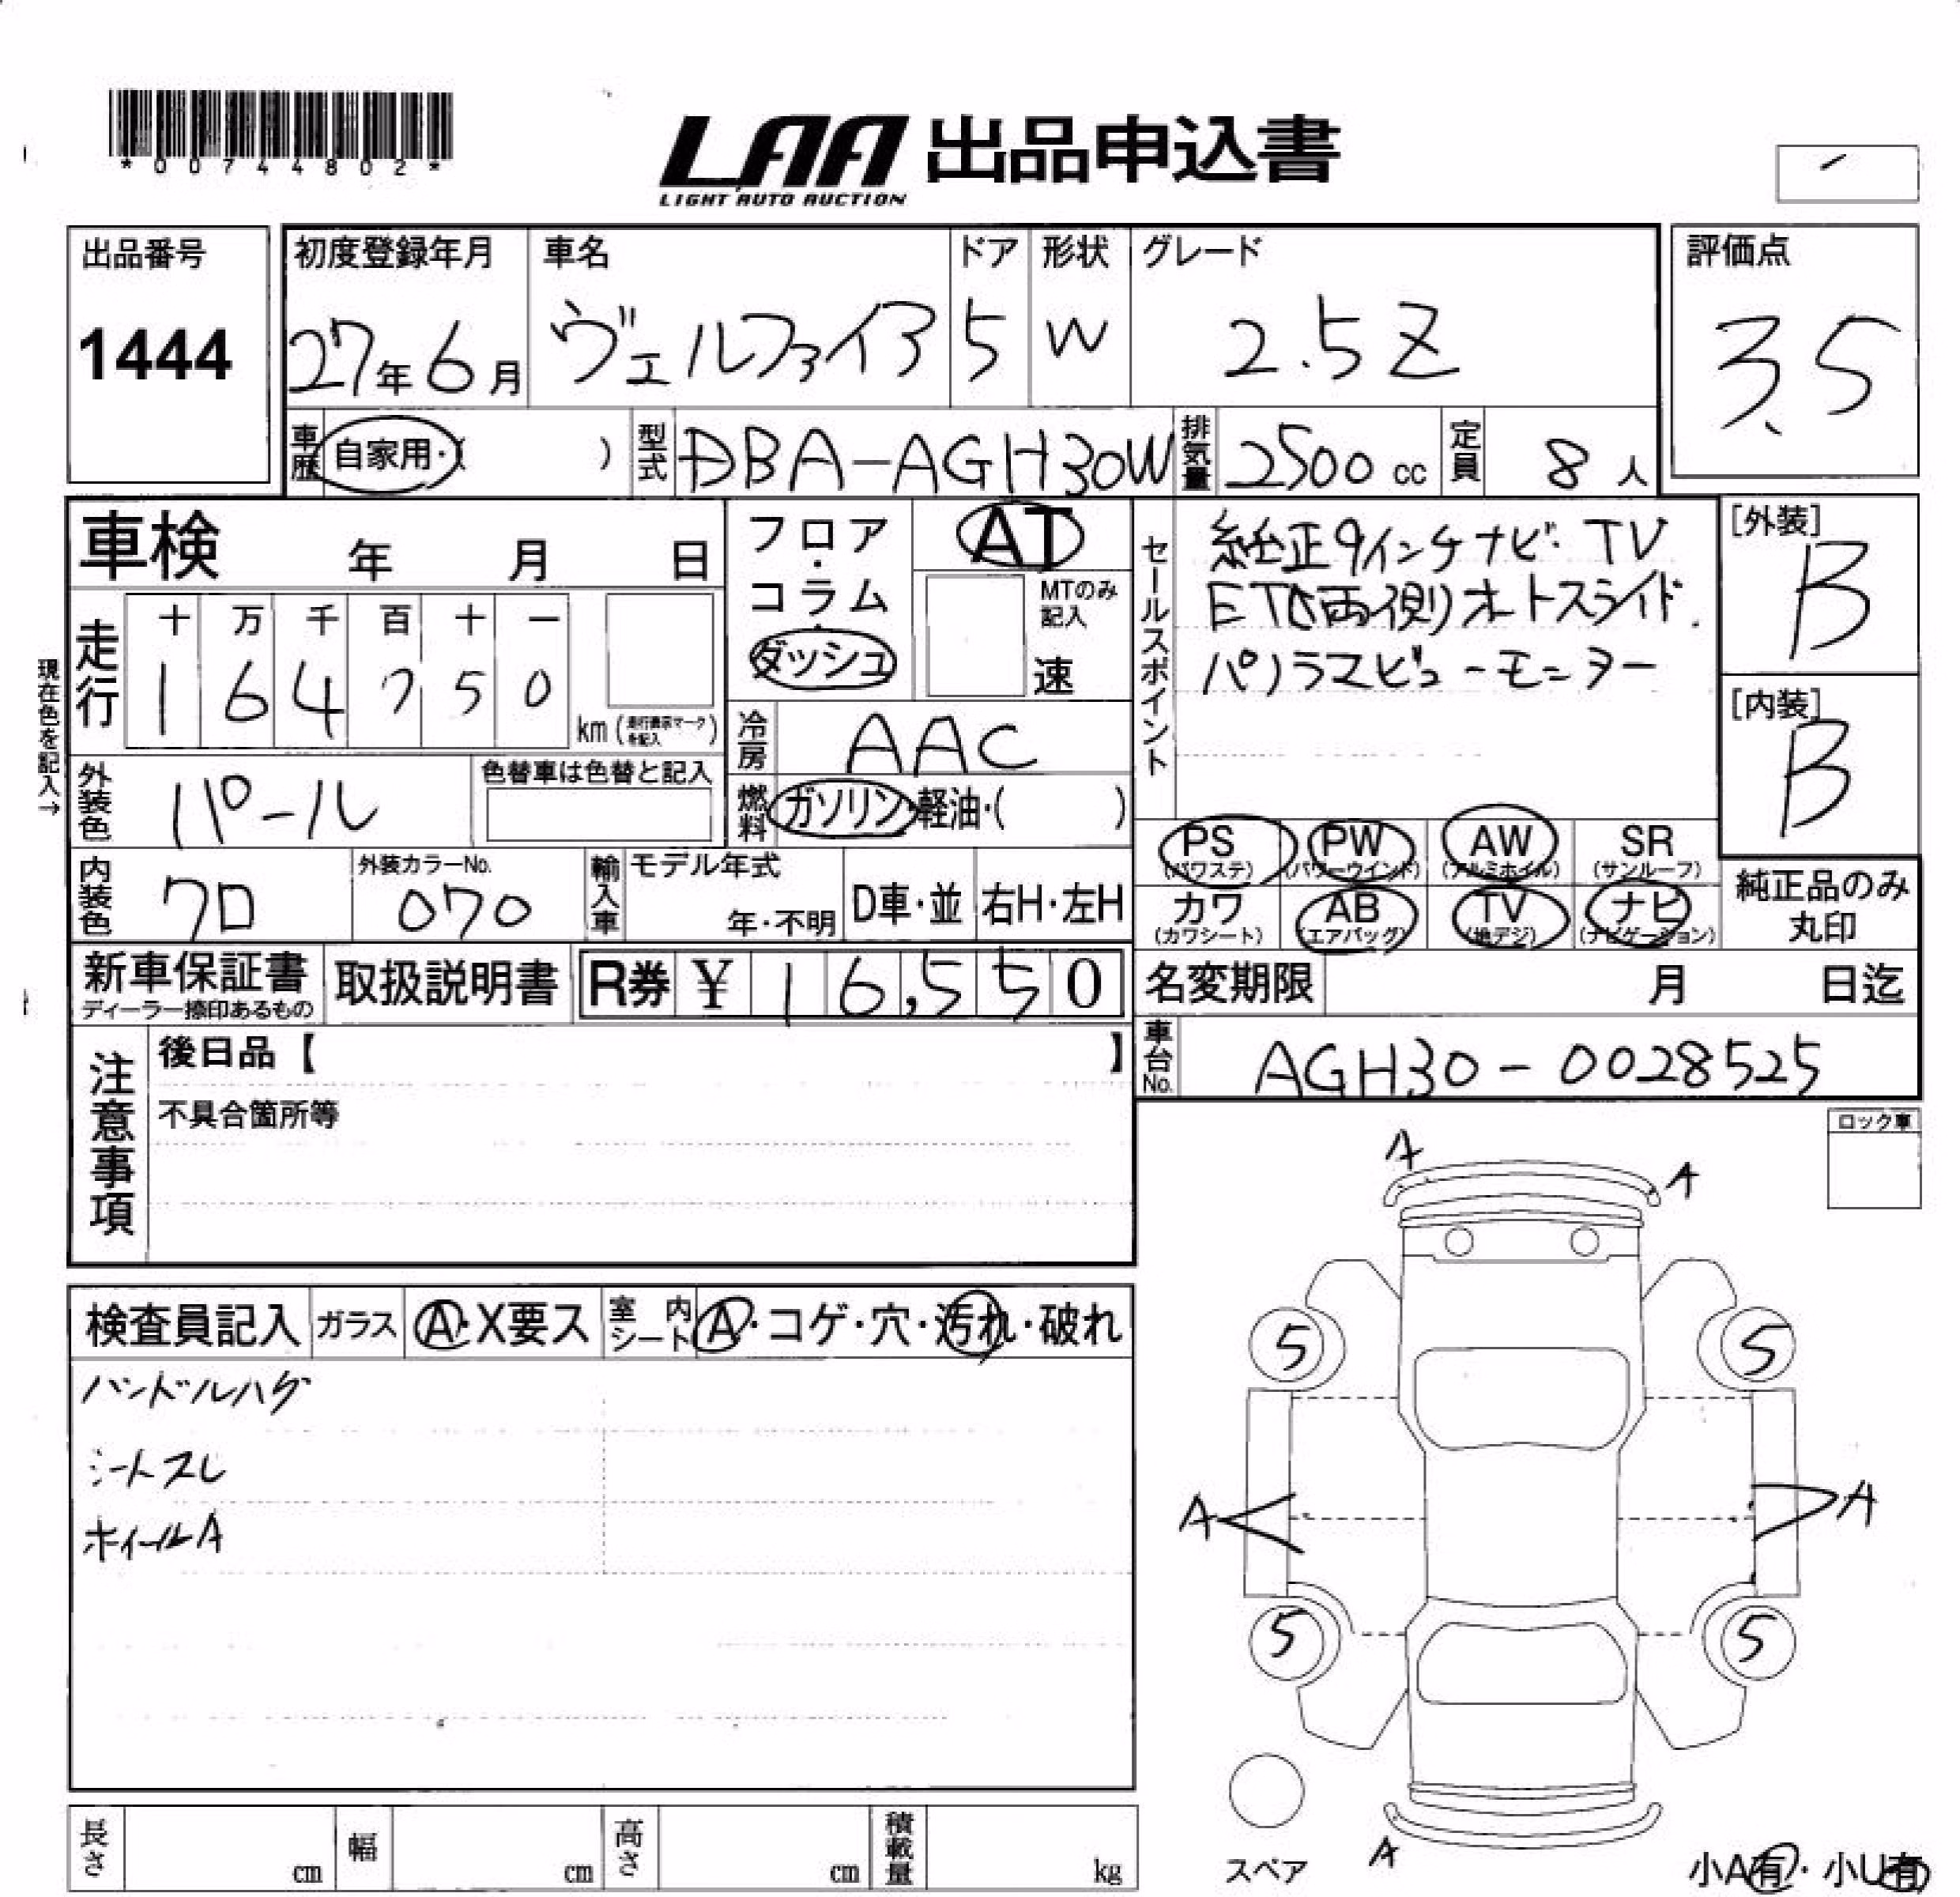 *00744802*
LAA 出品申込書
LIGHT AUTO AUCTION
出品番号
1444
初度登録年月
27年6月
車名
ヴェルファイア
ドア
5
形状
W
グレード
2.5Z
評価点
3.5
車歴
自家用・( )
型式
DBA-AGH30W
排気量
2500 cc
定員
8 人
車検 年 月 日
フロア・コラム・ダッシュ
AT
MTのみ記入
速
セールスポイント
純正9インチナビ・TV
ETC両側オートスライド.
パノラマビューモニター
[外装]
B
[内装]
B
走行
十 万 千 百 十 一
1 6 4 7 5 0
km (走行表示マークを記入)
現在色を記入→
冷房
AAC
外装色
パール
色替車は色替と記入
燃料
ガソリン・軽油・( )
PS (パワステ)
PW (パワーウインド)
AW (アルミホイル)
SR (サンルーフ)
カワ (カワシート)
AB (エアバッグ)
TV (地デジ)
ナビ (ナビゲーション)
純正品のみ丸印
内装色
クロ
外装カラーNo.
070
輸入車
モデル年式
年・不明
D車・並
右H・左H
新車保証書
ディーラー捺印あるもの
取扱説明書
R券 ¥ 16,550
名変期限 月 日迄
車台No.
AGH30-0028525
注意事項
後日品【 】
不具合箇所等
ロック車
検査員記入
ガラス
A・X要ス
室内シート
A・コゲ・穴・汚れ・破れ
ハンドルハゲ
シートスレ
ホイールA
A
A
5
5
A
A
5
5
スペア
A
小A有・小U有
長さ cm
幅 cm
高さ cm
積載量 kg